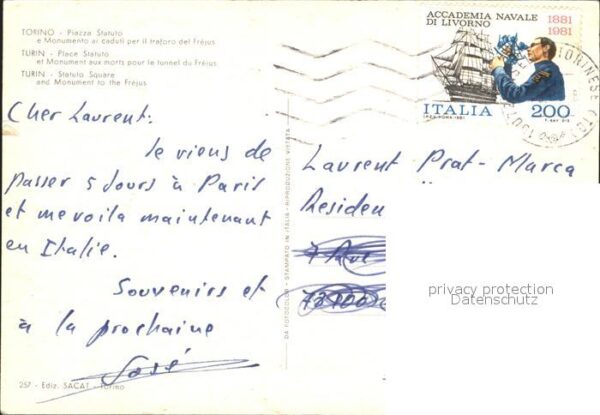 TORINO - Piazza Statuto
e Monumento ai caduti per il traforo del Fréjus
TURIN - Place Statuto
et Monument aux morts pour le tunnel du Fréjus
TURIN - Statuto Square
and Monument to the Fréjus
Cher Laurent:
Je viens de
passer 5 Jours à Paris
et me voila maintenant
en Italie.
Souvenirs et
à la prochaine
José
257 - Ediz. SACAT - Torino
DA FOTOCOLOR - STAMPATO IN ITALIA - RIPRODUZIONE VIETATA
ACCADEMIA NAVALE
DI LIVORNO
1881
1981
ITALIA 200
TORINESE (TO)
Laurent Prat-Marca
Residen
7
privacy protection
Datenschutz